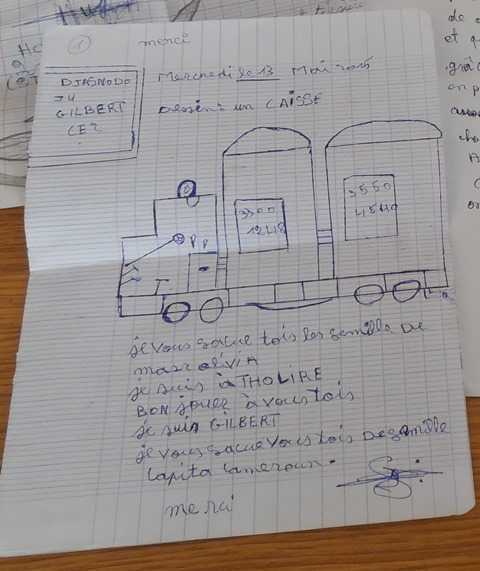 1
merci
DJASNODO
JU
GILBERT
CE2
Mercredi le 13 Mai 2015
Dessine un CAISSE
3300
1248
3550
4540
P P
je vous salue tois les familles De
masr olivia
je suis à THOLIRE
BON jouer à vous tois
je suis GILBERT
je vous salue vous tois De famille
Capita Cameroun.
merci